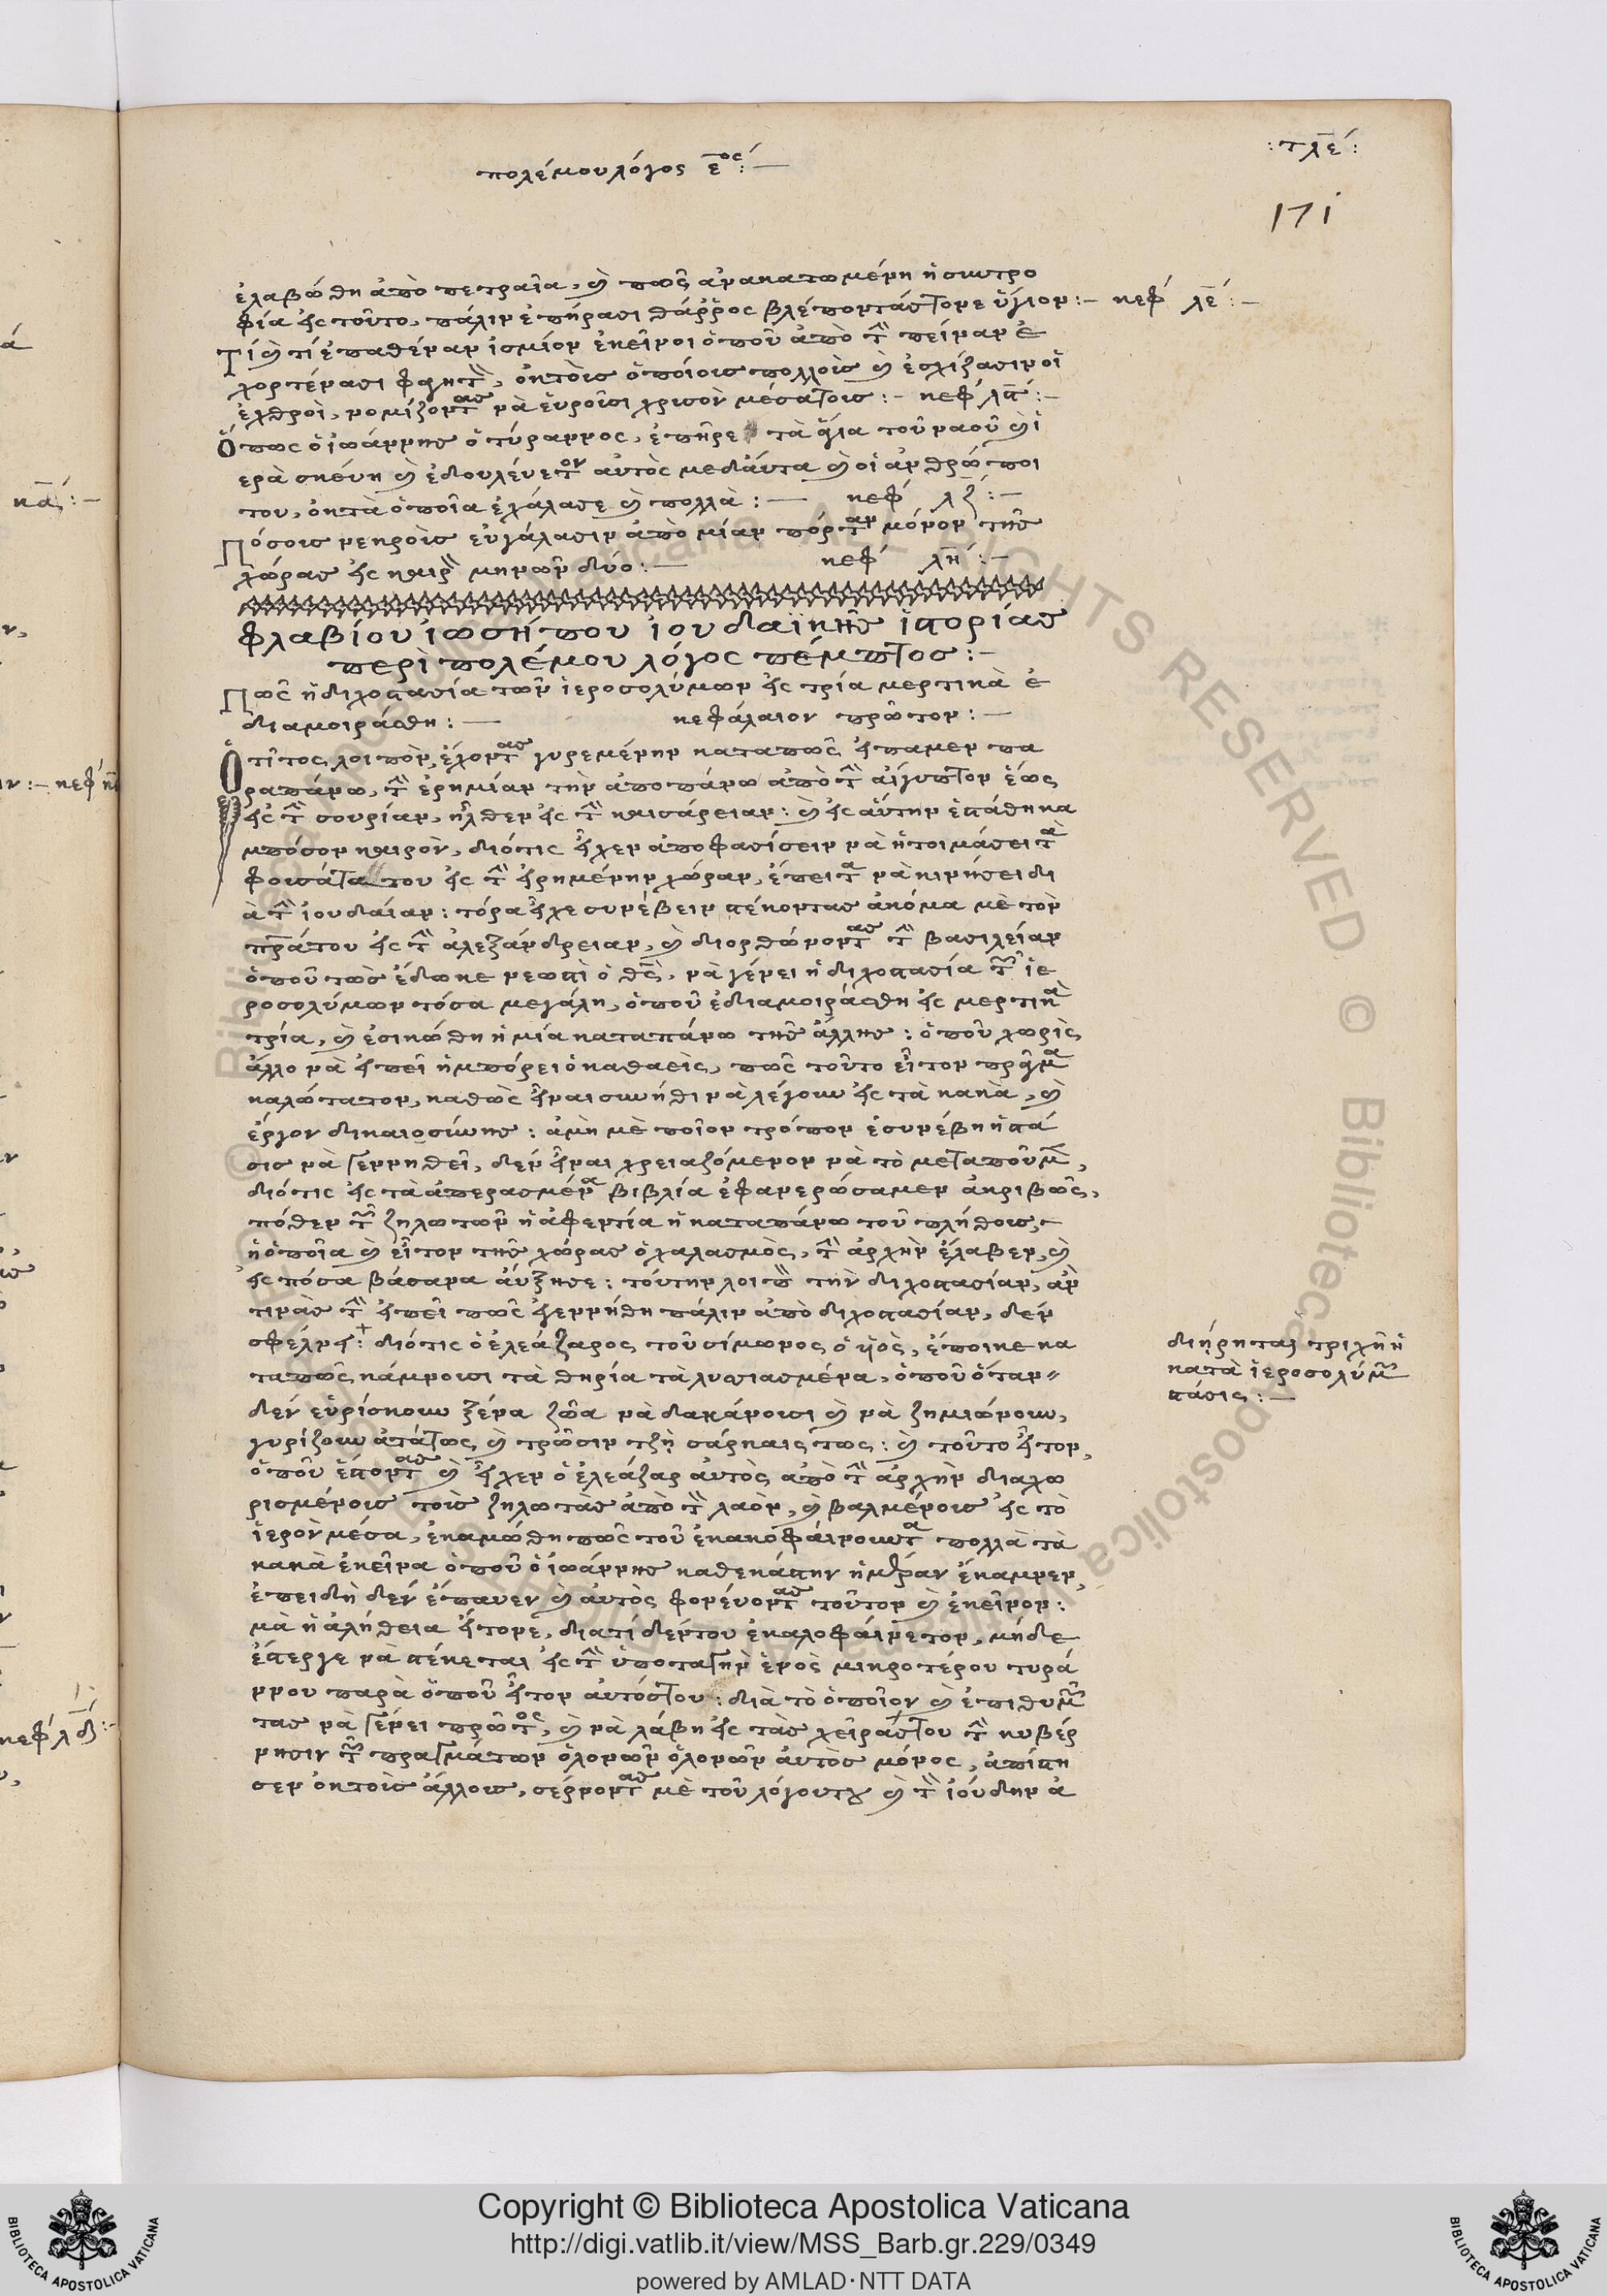 πολέμου λόγος ε̅ος:—
:τλε:
171
ἐλαβώθη ἀπὸ πετραῖα, καὶ πῶς ἀνακατωμένη ἡ συντρο
φία εἰς τοῦτο, πάλιν ἐπήρασι θάῤῥος βλέποντάς τονε ὕγιον:— κεφ λε:—
Τί καὶ τί ἐπαθέναν ἐκεῖνοι ὁποῦ ἀπὸ τὴν πεῖναν ἐ
χορτένασι φαητὸ, ὀκτοὺς ὁποίους πολλοὺς καὶ ἐσχίζασιν οἱ
ἐχθροὶ, νομίζοντας νὰ εὑροῦσι χρισὸν μέσα τους:— κεφ λϛ:—
Ὅπως ὁ ἰωάννης ὁ τύραννος, ἐπῆρε τὰ ἅγια τοῦ ναοῦ καὶ ἱ
ερὰ σκέυη καὶ ἐδουλέυετον αὐτὸς μεδαύτα καὶ οἱ ἀνθρώποι
του, ὀκτὰ ὁποῖα ἐχάλασε καὶ πολλὰ:— κεφ λζ:—
Πόσους νεκροὺς εὐγάλασιν ἀπὸ μίαν πόρταν μόνον τῆς
χώρας εἰς καιρὸν μηνῶν δύο:— κεφ λη:—
Φλαβίου ἰωσήπου ἰουδαϊκῆς ἱστορίας
περὶ πολέμου λόγος πέμπτος:—
Πῶς ἡ διχοστασία τῶν ἱεροσολύμων εἰς τρία μερτικὰ ἐ
διαμοιράσθη:— κεφάλαιον πρῶτον:—
Ὁ τίτος λοιπὸν, ἔχοντας γυρεμένην καταπῶς εἴπαμεν πα
ραπάνω, τὴν ἐρημίαν τὴν ἀποπάνω ἀπὸ τὴν αἴγυπτον ἕως
εἰς τὴν συρίαν, ἦλθεν εἰς τὴν καισάρειαν: καὶ εἰς αὐτὴν ἐστάθηκα
μπόσον καιρὸν, διότις εἶχεν ἀποφασίσειν νὰ ἡτοιμάσει τὰ
φουσάτα του εἰς τὴν εἰρημένην χώραν, ἔπειτα νὰ κινήσει δι
ὰ τὴν ἰουδαίαν: τόρα εἶχε συνέβειν στέκοντας ἀκόμα μὲ τὸν
πράτου εἰς τὴν ἀλεξάνδρειαν, καὶ διορθώνοντας τὴν βασιλείαν
ὁποῦ τὼς ἔδωκε νεωστὶ ὁ θς, νὰ γένει ἡ διχοστασία τῶν ἱε
ροσολύμων τόσα μεγάλη, ὁποῦ ἐδιαμοιράσθη εἰς μερτικὰ
τρία, καὶ ἐσικώθη ἡ μία καταπάνω τῆς ἄλλης: ὁποῦ χωρὶς
ἄλλο νὰ εἰπεῖ ἡμπόρει ὁ καθαεὶς, πῶς τοῦτο εἶτον πρᾶγμα
καλώτατον, καθὼς εἶναι συνήθι νὰ λέγουν εἰς τὰ κακὰ, καὶ
ἔργον δικαιοσύνης: ἀμὴ μὲ ποῖον τρόπον ἐσυνέβη ἡ στά
σις νὰ γεννηθεῖ, δὲν εἶναι χρειαζόμενον νὰ τὸ μεταποῦμε,
διότις εἰς τὰ ἀπερασμένα βιβλία ἐφανερώσαμεν ἀκριβῶς,
πόθεν τῶν ζηλωτῶν ἡ ἀφεντία ἡ καταπάνω τοῦ πλήθους,
ἡ ὁποῖα καὶ εἶτον τῆς χώρας ὁ χαλασμὸς, τὴν ἀρχὴν ἔλαβεν, καὶ
εἰς πόσα βάσανα ἀύξησε: τούτην λοιπὸν τὴν διχοστασίαν, ἂν
τινὰς τὴν εἰπεῖ πῶς ἐγεννήθη πάλιν ἀπὸ διχοστασίαν, δὲν
σφέλνει: διότις ὁ ἐλεάζαρος τοῦ σίμωνος ὁ ὑιὸς, ἔποικε κα
ταπῶς κάμνουσι τὰ θηρία τὰ λυσιασμένα, ὁποῦ ὅταν
δὲν εὑρίσκουν ξένα ζῶα νὰ δακάνουσι καὶ νὰ ζημιώνουν,
γυρίζουν ἀτάτως, καὶ τρῶσιν τζὴ σάρκαις τως: καὶ τοῦτο εἶτον,
ὁποῦ ἔστοντας καὶ εἶχεν ὁ ἐλεάζαρ αὐτὸς ἀπὸ τὴν ἀρχὴν διαχω
ρισμένους τοὺς ζηλωτὰς ἀπὸ τὸν λαὸν, καὶ βαλμένους εἰς τὸ
ἱερὸν μέσα, ἐκαμώθη πῶς τοῦ ἐκακοφαίνουντα πολλὰ τὰ
κακὰ ἐκεῖνα ὁποῦ ὁ ἰωάννης καθεκάστην ἡμέραν ἔκαμνεν,
ἐπειδὴ δὲν ἔπαυεν καὶ αὐτὸς φονέυοντας τοῦτον καὶ ἐκεῖνον:
μὰ ἡ ἀλήθεια εἶτονε, διατὶ δὲν του ἐκαλοφαίνετον, μήδε
ἔστεργε νὰ στέκεται εἰς τὴν ὑποταγὴν ἑνὸς μικροτέρου τυρά
ννου παρὰ ὁποῦ εἶτον αὐτός του: διὰ τὸ ὁποῖον καὶ ἐπιθυμῶν
τας νὰ γένει πρῶτος, καὶ νὰ λάβη εἰς τὰς χεῖράς του τὴν κυβέρ
νησιν τῶν πραγμάτων ὁλονῶν ὁλονῶν αὐτὸς μόνος, ἀπίστη
σεν ὀκτοὺς ἄλλους, σέρνοντας μὲ τοῦ λόγου του καὶ τὸν ἰούδην ἀ
διήρηται τριχῆ ἡ
κατὰ ἱεροσολύμων
στάσις:—
Copyright © Biblioteca Apostolica Vaticana
http://digi.vatlib.it/view/MSS_Barb.gr.229/0349
powered by AMLAD·NTT DATA